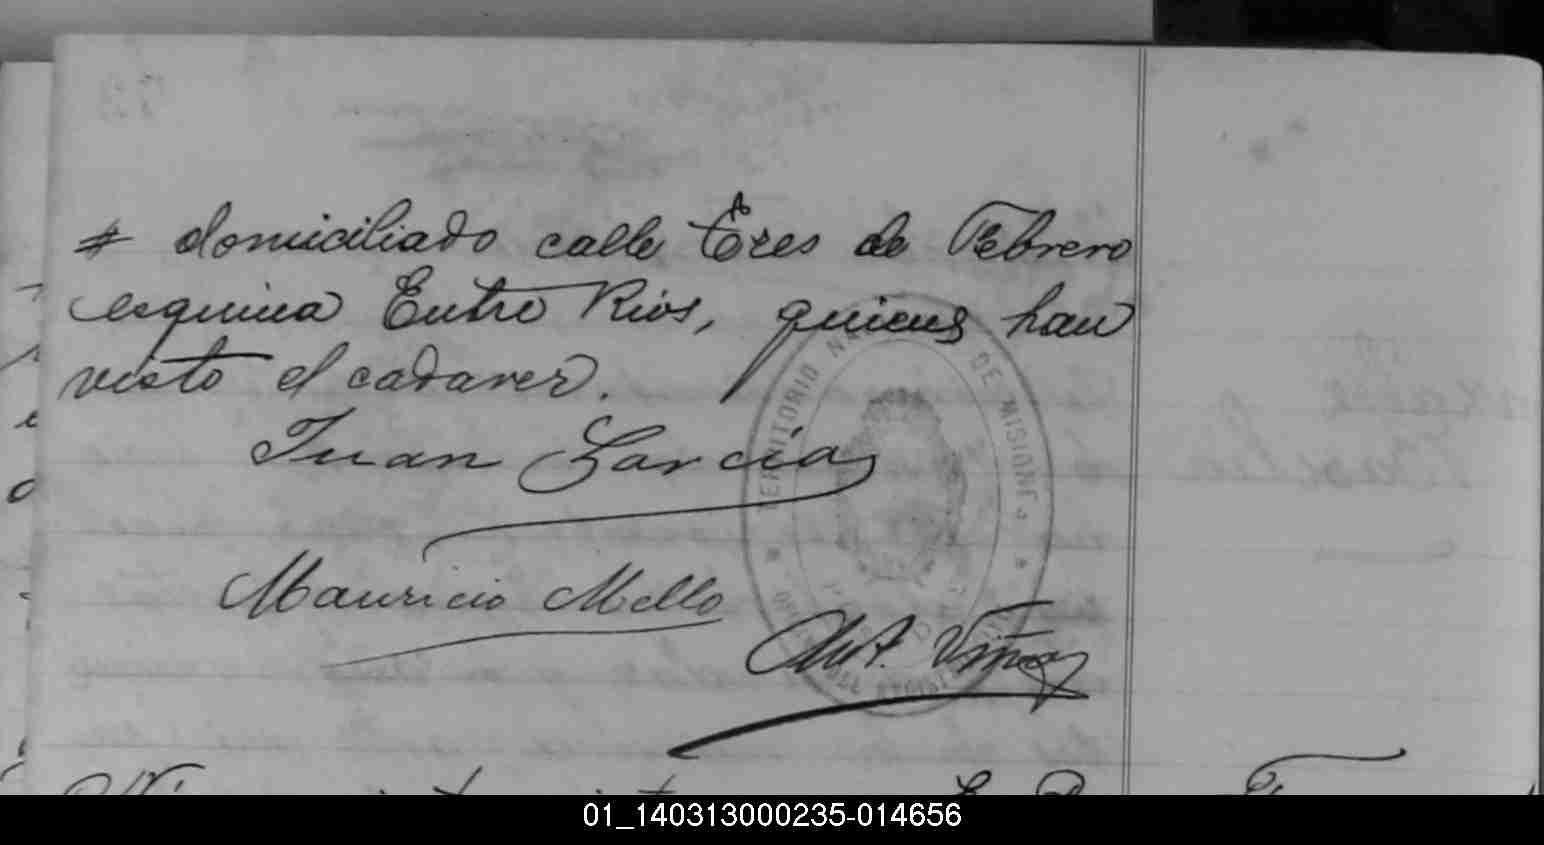 # domiciliado calle Tres de Febrero
esquina Entre Rios, quienes han
visto el cadaver.
Juan García
Mauricio Mello
Viñas
TERRITORIO NACIONAL DE MISIONES
01_140313000235-014656